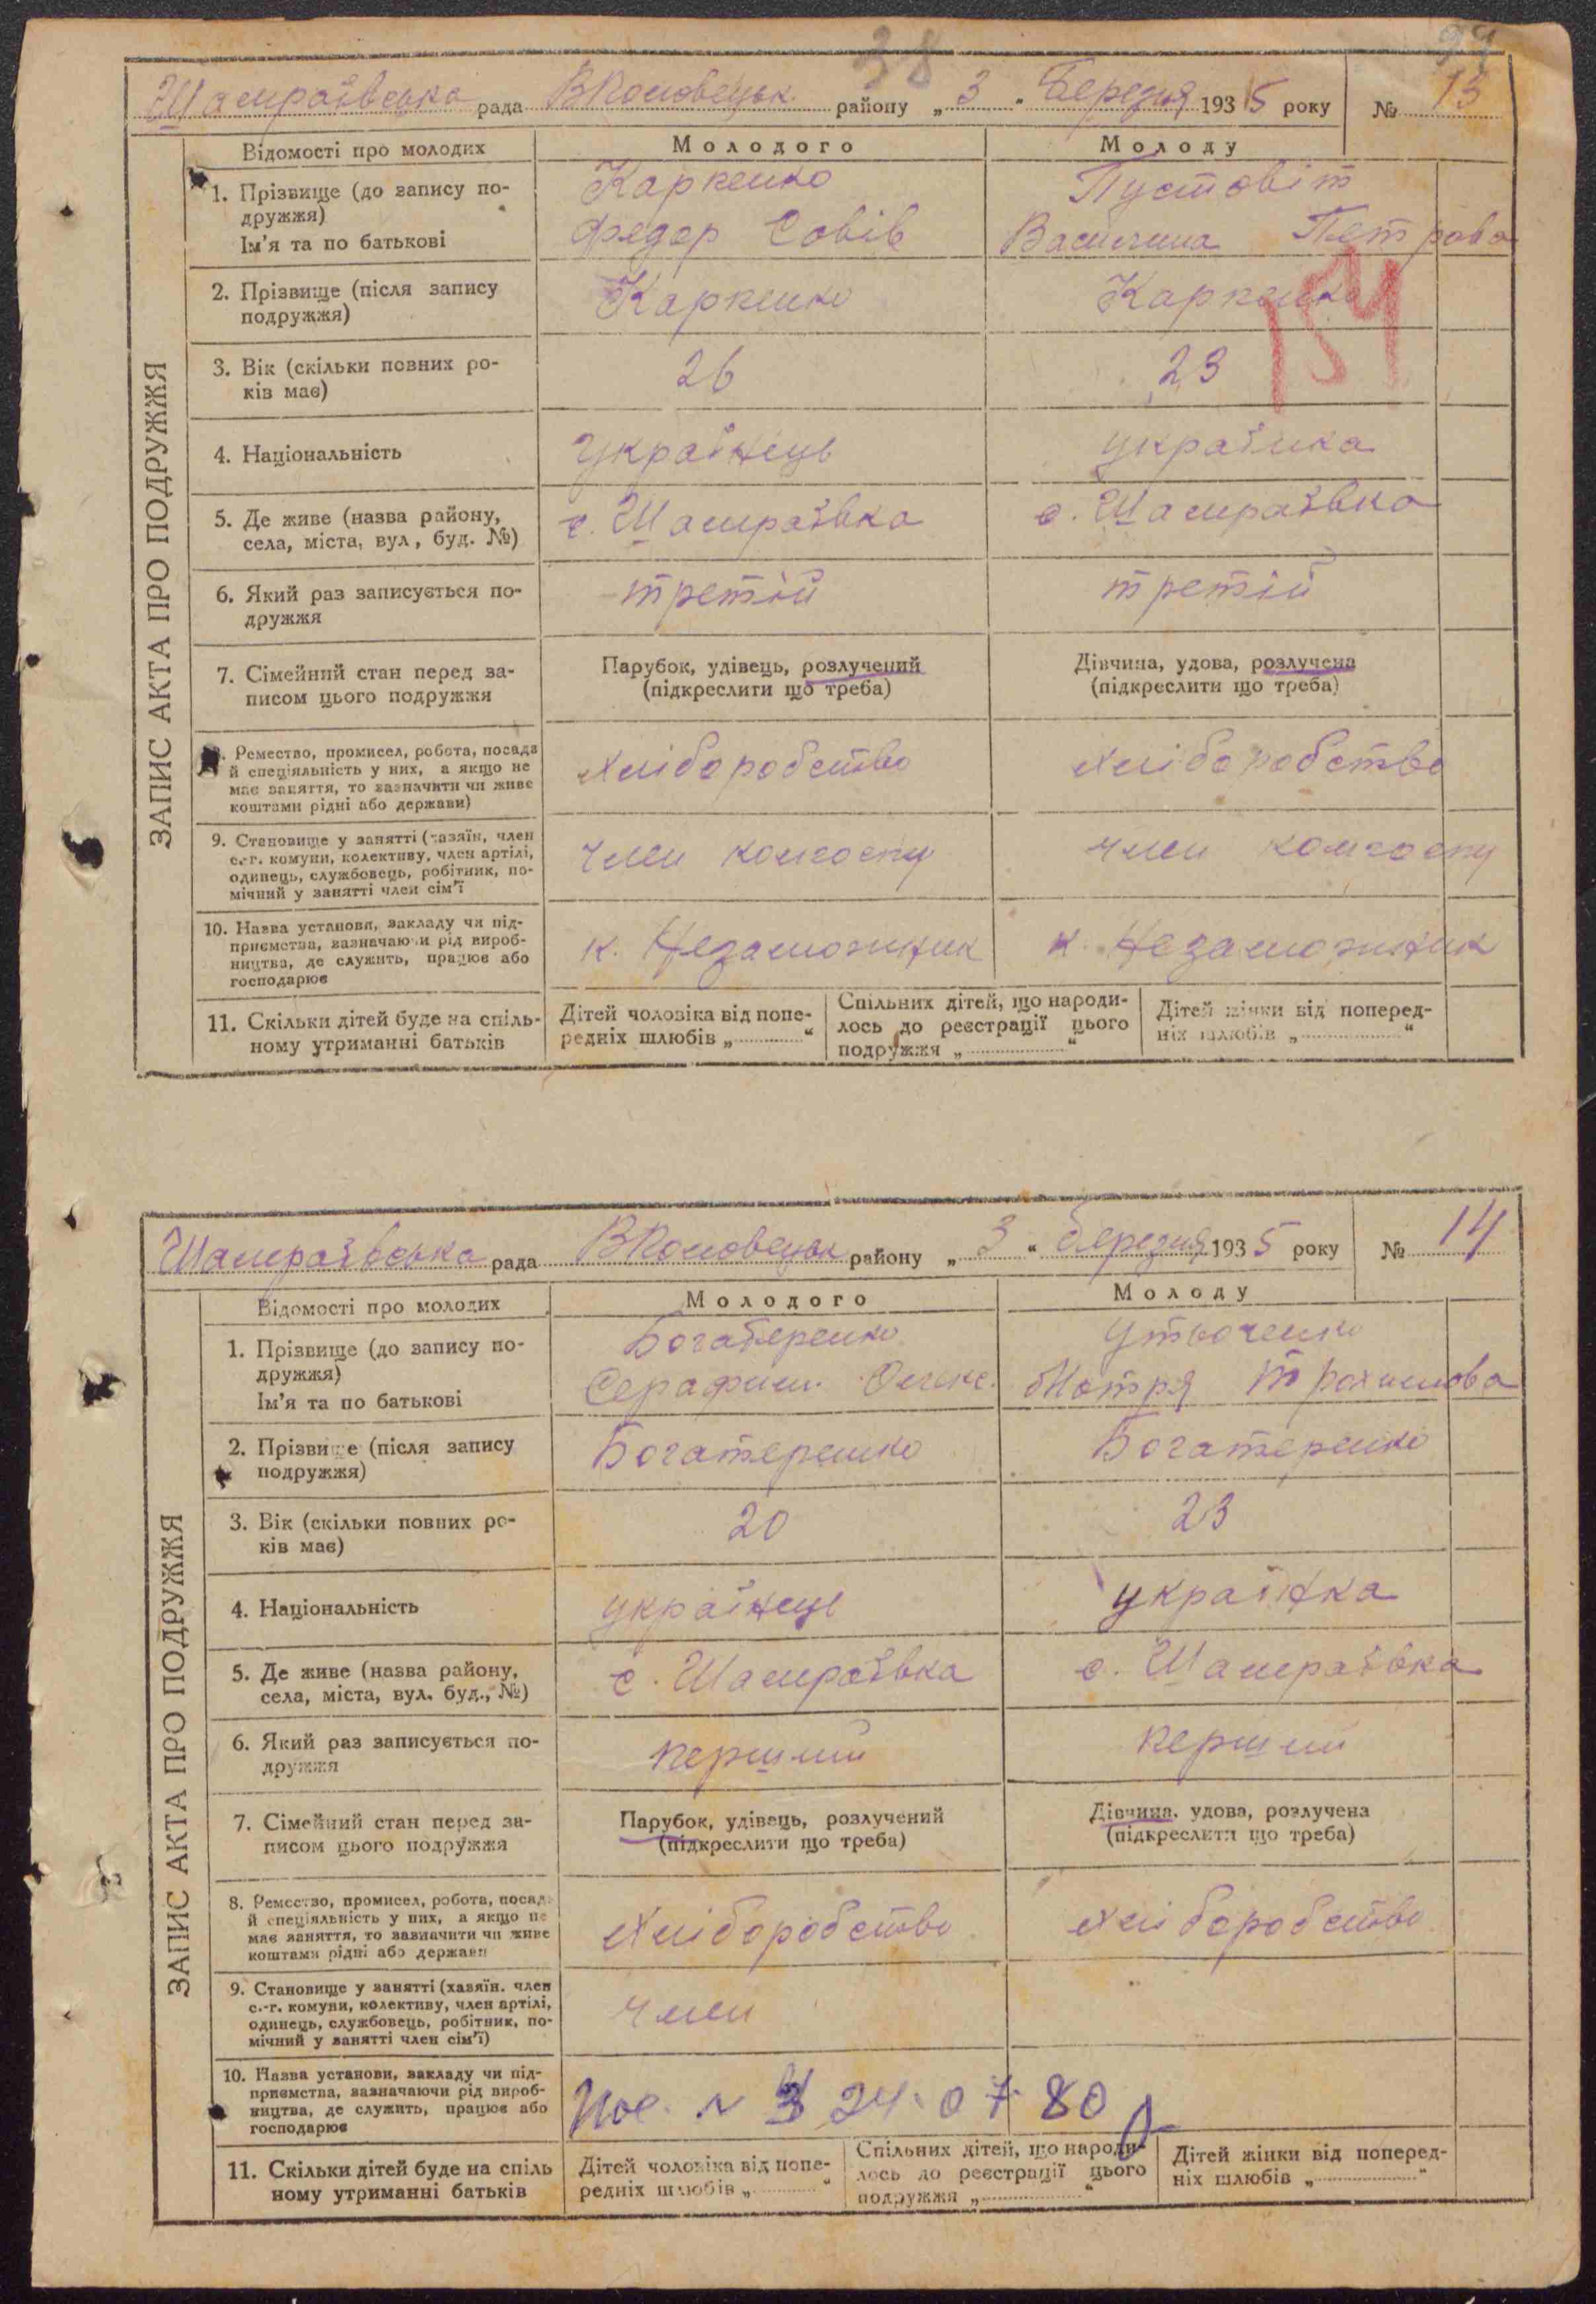 38
Шамраївська рада В Половецьк. району „ 3 “ Березня 1935 року № 13
ЗАПИС АКТА ПРО ПОДРУЖЖЯ
Відомості про молодих Молодого Молоду
1. Прізвище (до запису по- Каркенко Пустовіт
дружжя)
Ім'я та по батькові Федор Совів Василина Петрова
2. Прізвище (після запису Каркенко Каркенко
подружжя)
154
3. Вік (скільки повних ро- 26 23
ків має)
4. Національність Українець українка
5. Де живе (назва району, с. Шамраївка с. Шамраївка
села, міста, вул, буд. №)
6. Який раз записується по- третій третій
дружжя
7. Сімейний стан перед за- Парубок, удівець, розлучений Дівчина, удова, розлучена
писом цього подружжя (підкреслити що треба) (підкреслити що треба)
Ремество, промисел, робота, посада
й спеціяльність у них, а якщо не хліборобство хліборобство
має заняття, то зазначити чи живе
коштами рідні або держави)
9. Становище у занятті (хазяїн, член
с.-г. комуни, колективу, член артілі, член колгоспу член колгоспу
одинець, службовець, робітник, по-
мічний у занятті член сім'ї
10. Назва установи, закладу чи під-
приємства, зазначаючи рід вироб- к. Незаможник к. Незаможник
ництва, де служить, працює або
господарює
11. Скільки дітей буде на спіль- Дітей чоловіка від попе- Спільних дітей, що народи- Дітей жінки від поперед-
ному утриманні батьків редніх шлюбів „ “ лось до реєстрації цього ніх шлюбів „ “
подружжя „ “
Шамраївська рада В Половецьк району „ 3 “ березня 1935 року № 14
ЗАПИС АКТА ПРО ПОДРУЖЖЯ
Відомості про молодих Молодого Молоду
1. Прізвище (до запису по- Богатеренко Утвоченко
дружжя)
Ім'я та по батькові Серафим Олекс. Мотря Трохимова
2. Прізвище (після запису Богатеренко Богатеренко
подружжя)
3. Вік (скільки повних ро- 20 23
ків має)
4. Національність українець українка
5. Де живе (назва району, с. Шамраївка с. Шамраївка
села, міста, вул. буд., №)
6. Який раз записується по- перший перший
дружжя
7. Сімейний стан перед за- Парубок, удівець, розлучений Дівчина, удова, розлучена
писом цього подружжя (підкреслити що треба) (підкреслити що треба)
8. Ремество, промисел, робота, посад
й спеціяльність у них, а якщо не хліборобство хліборобство
має заняття, то зазначити чи живе
коштами рідні або держави
9. Становище у занятті (хазяїн. член
с.-г. комуни, колективу, член артілі, член
одинець, службовець, робітник, по-
мічний у занятті член сім'ї)
10. Назва установи, закладу чи під-
приємства, зазначаючи рід вироб- 24.07.80
ництва, де служить, працює або
господарює
11. Скільки дітей буде на спіль Дітей чоловіка від попе- Спільних дітей, що народи- Дітей жінки від поперед-
ному утриманні батьків редніх шлюбів „ “ лось до реєстрації цього ніх шлюбів „ “
подружжя „ “